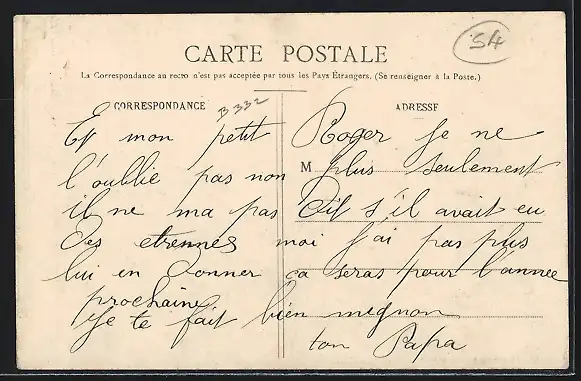 CARTE POSTALE
54
La Correspondance au recto n'est pas acceptée par tous les Pays Étrangers. (Se renseigner à la Poste.)
CORRESPONDANCE
B 332
ADRESSE
M
Et mon petit Roger je ne
l'oublie pas non plus seulement
il ne ma pas dit s'il avait eu
des etrennes moi j'ai pas plus
lui en donner ça seras pour l'annee
prochaine
Je te fait bien mignon
ton Papa